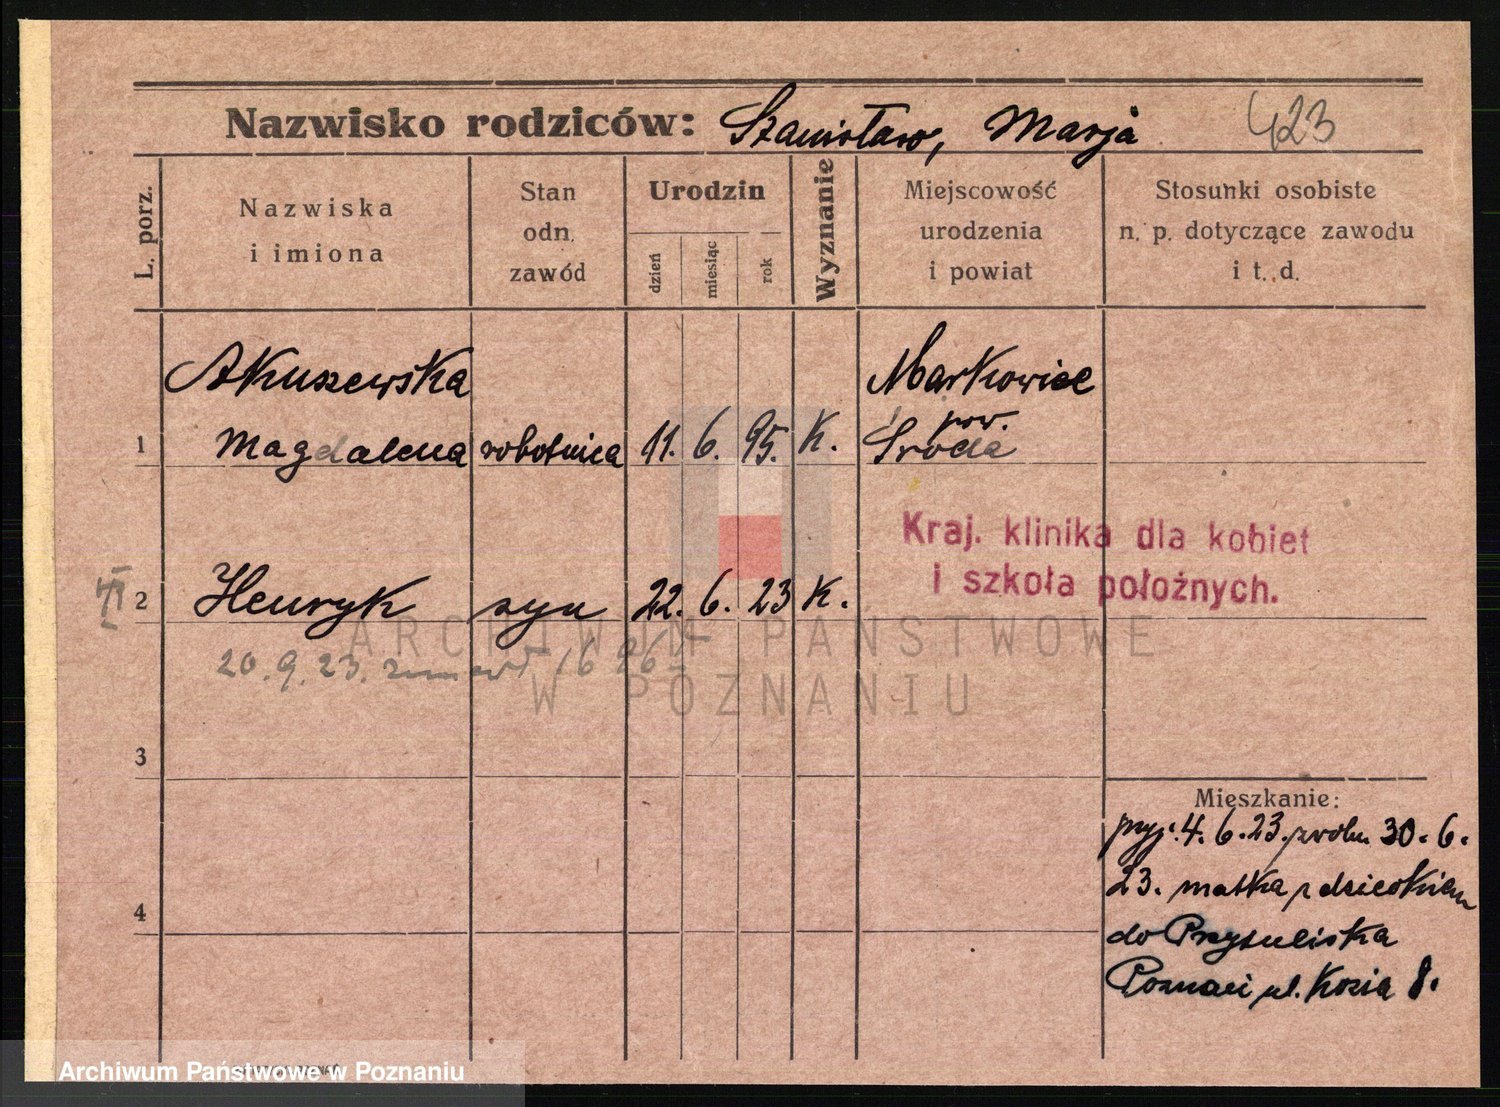 Nazwisko rodziców: Stanisław, Marja 423
L. porz.
Nazwiska
i imiona
Stan
odn.
zawód
Urodzin
dzień
miesiąc
rok
Wyznanie
Miejscowość
urodzenia
i powiat
Stosunki osobiste
n. p. dotyczące zawodu
i t. d.
Akuszewska
Markowice
pow.
1 Magdalena robotnica 11. 6. 95. K. Środa
Kraj. klinika dla kobiet
i szkoła położnych.
2 Henryk syn 22. 6. 23 K.
20. 9. 23. zmarł
ARCHIWUM PAŃSTWOWE
W POZNANIU
3
Mieszkanie:
przyj. 4. 6. 23. 30. 6.
23. matka z dzieckiem
4
do Przytuliska
Poznań ul. Kozia 8.
Archiwum Państwowe w Poznaniu